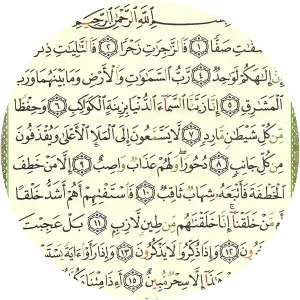 بِسْمِ ٱللَّهِ ٱلرَّحْمَٰنِ ٱلرَّحِيمِ
صَفًّا ١ فَٱلزَّٰجِرَٰتِ زَجْرًا ٢ فَٱلتَّٰلِيَٰتِ
إِنَّ إِلَٰهَكُمْ لَوَٰحِدٌ ٤ رَّبُّ ٱلسَّمَٰوَٰتِ وَٱلْأَرْضِ وَمَا بَيْنَهُمَا وَرَبُّ
ٱلْمَشَٰرِقِ ٥ إِنَّا زَيَّنَّا ٱلسَّمَآءَ ٱلدُّنْيَا بِزِينَةٍ ٱلْكَوَاكِبِ ٦ وَحِفْظًا
مِّن كُلِّ شَيْطَٰنٍ مَّارِدٍ ٧ لَّا يَسَّمَّعُونَ إِلَى ٱلْمَلَإِ ٱلْأَعْلَىٰ وَيُقْذَفُونَ
مِن كُلِّ جَانِبٍ ٨ دُحُورًا وَلَهُمْ عَذَابٌ وَاصِبٌ ٩ إِلَّا مَنْ خَطِفَ
ٱلْخَطْفَةَ فَأَتْبَعَهُۥ شِهَابٌ ثَاقِبٌ ١٠ فَٱسْتَفْتِهِمْ أَهُمْ أَشَدُّ خَلْقًا
أَم مَّنْ خَلَقْنَآ إِنَّا خَلَقْنَٰهُم مِّن طِينٍ لَّازِبٍ ١١ بَلْ عَجِبْتَ
١٢ وَإِذَا ذُكِّرُوا۟ لَا يَذْكُرُونَ ١٣ وَإِذَا رَأَوْا۟ ءَايَةً
هَٰذَآ إِلَّا سِحْرٌ مُّبِينٌ ١٥ أَءِذَا مِتْنَا